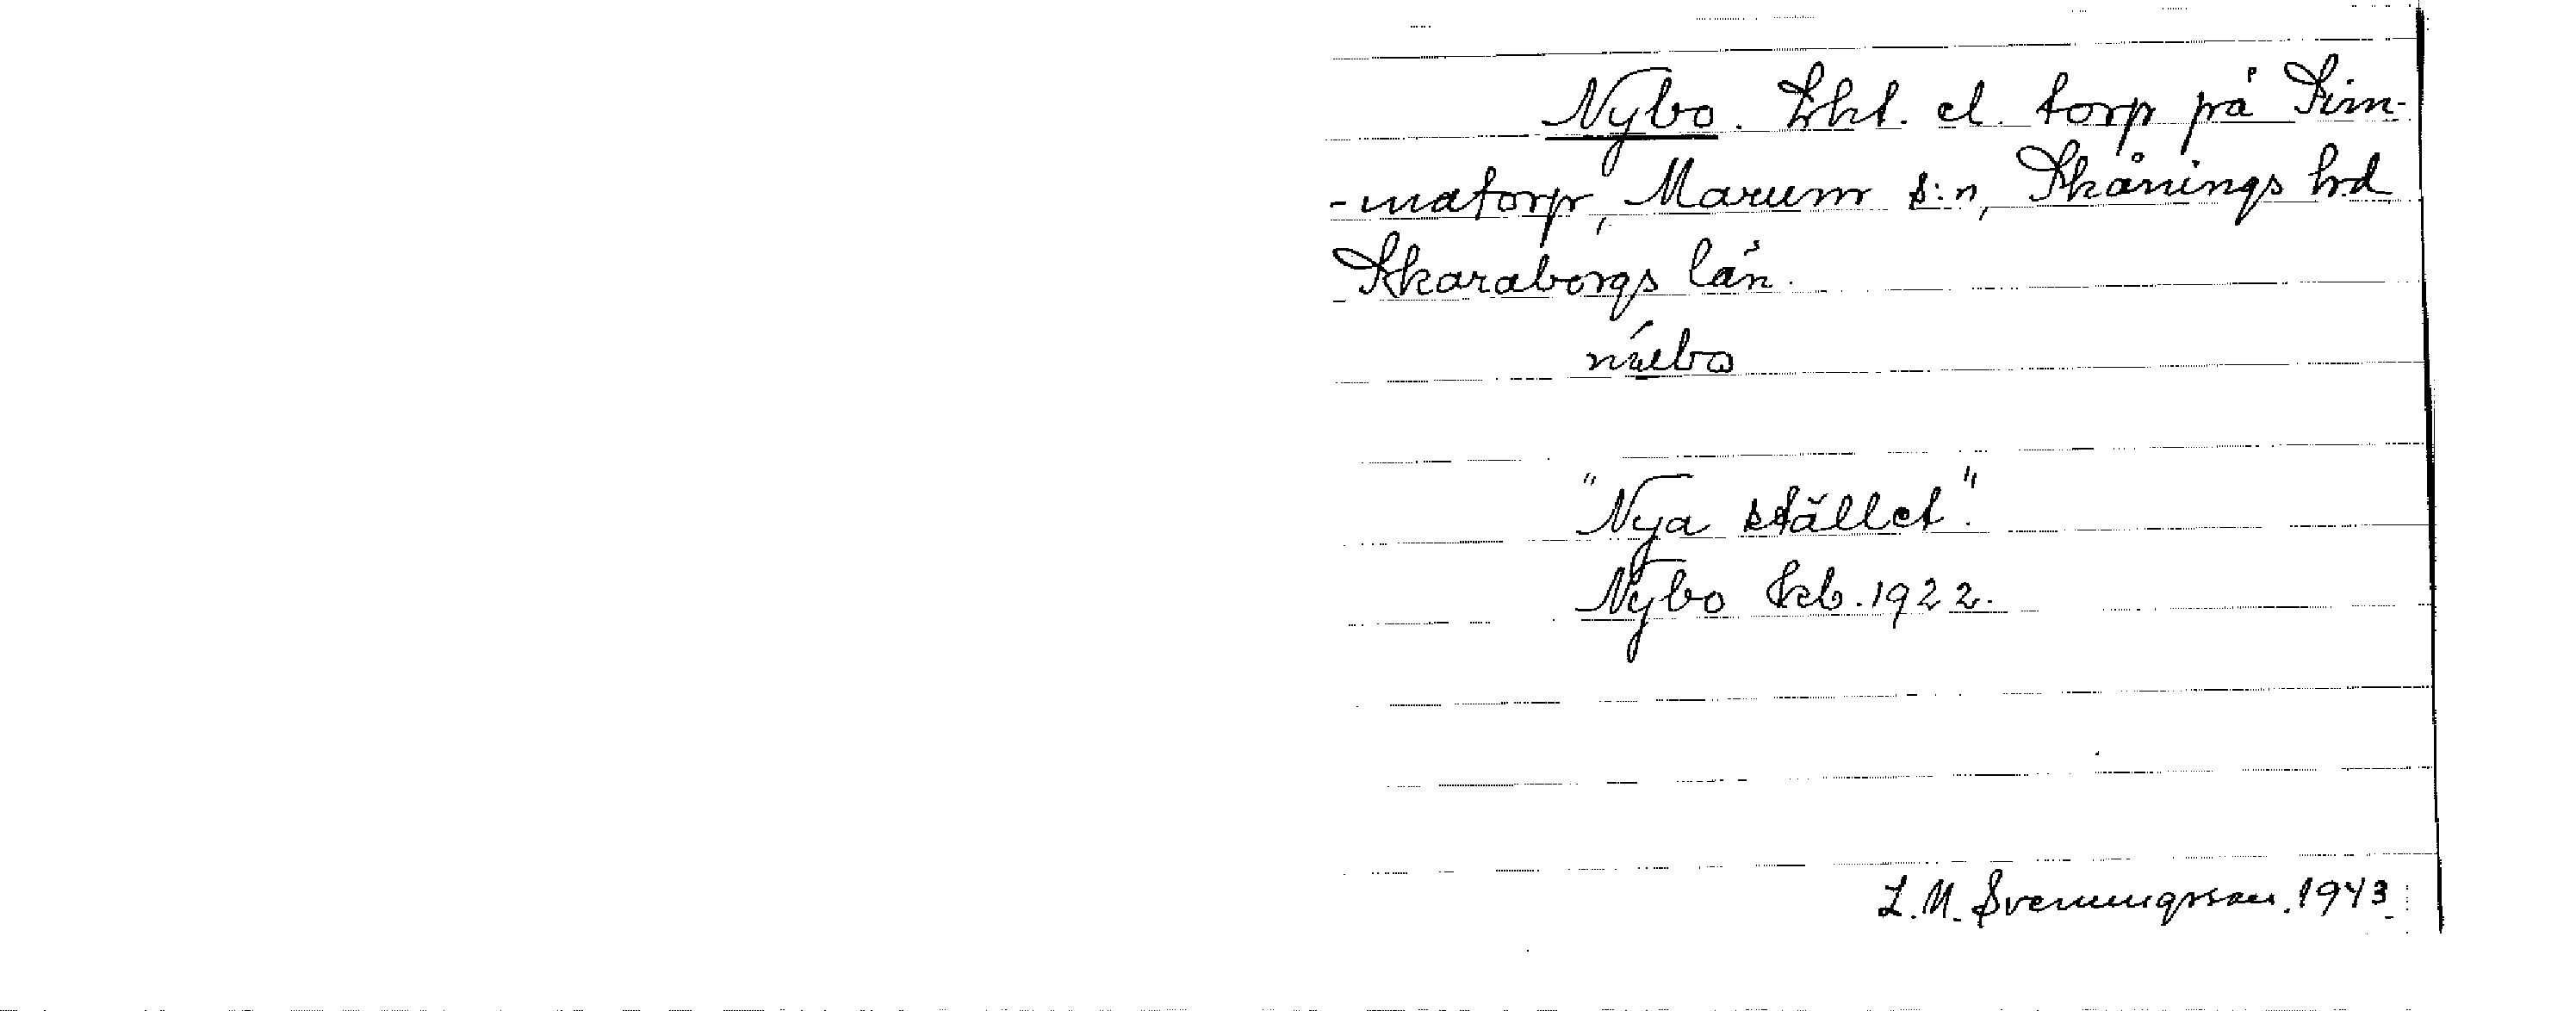 Nybo. Lht. el. torp på Sim-
-matorp, Marum s:n, Skånings hd
Skaraborgs län.
"Nya stället".
Nybo kb. 1922.
L. M. Svenungsson. 1943